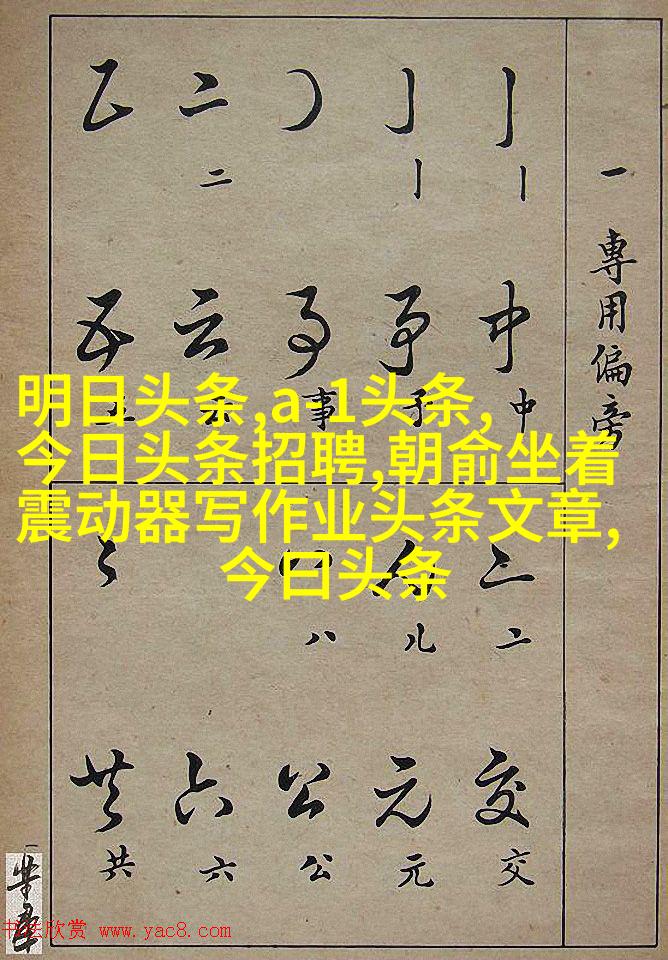 一 專用偏旁
丨 丨 二
丨
二
中 予 事 云 五
中 予 事
二 儿 八
交 元 公 六 共
交 元 公 六 共
明日头条,a-1头条,
今日头条招聘,朝俞坐着
震动器写作业头条文章,
今日头条
书法欣赏 www.yac8.com